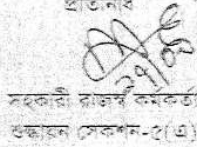 প্রতিনিধি
সহকারী রাজস্ব কর্মকর্তা
শুল্কায়ন সেকশন-৫(এ)